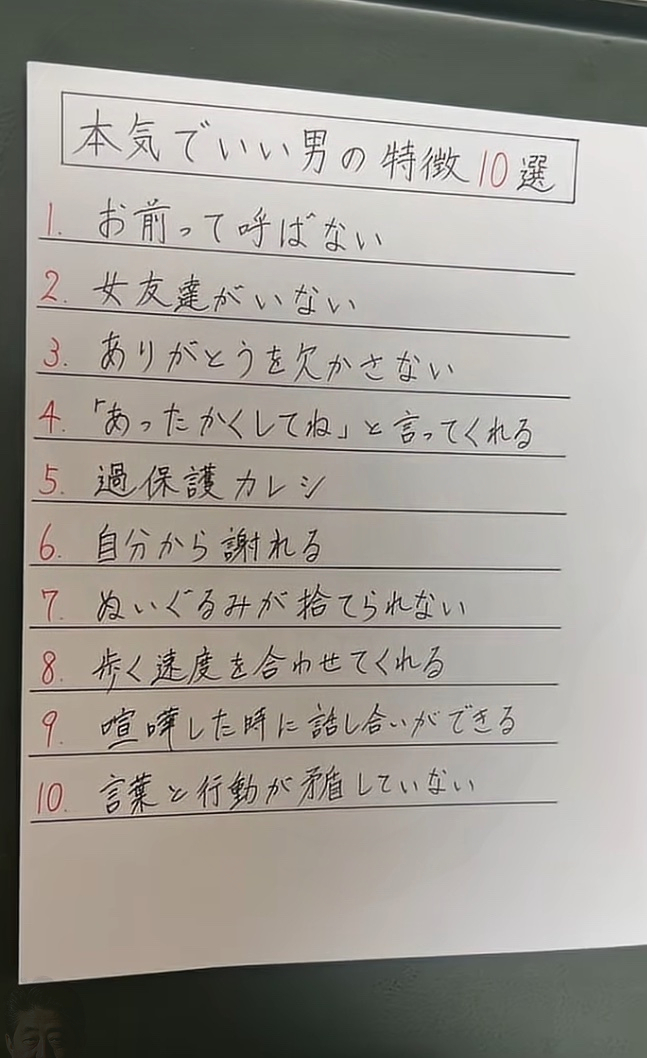 本気でいい男の特徴10選
1. お前って呼ばない
2. 女友達がいない
3. ありがとうを欠かさない
4. 「あったかくしてね」と言ってくれる
5. 過保護カレシ
6. 自分から謝れる
7. ぬいぐるみが捨てられない
8. 歩く速度を合わせてくれる
9. 喧嘩した時に話し合いができる
10. 言葉と行動が矛盾していない